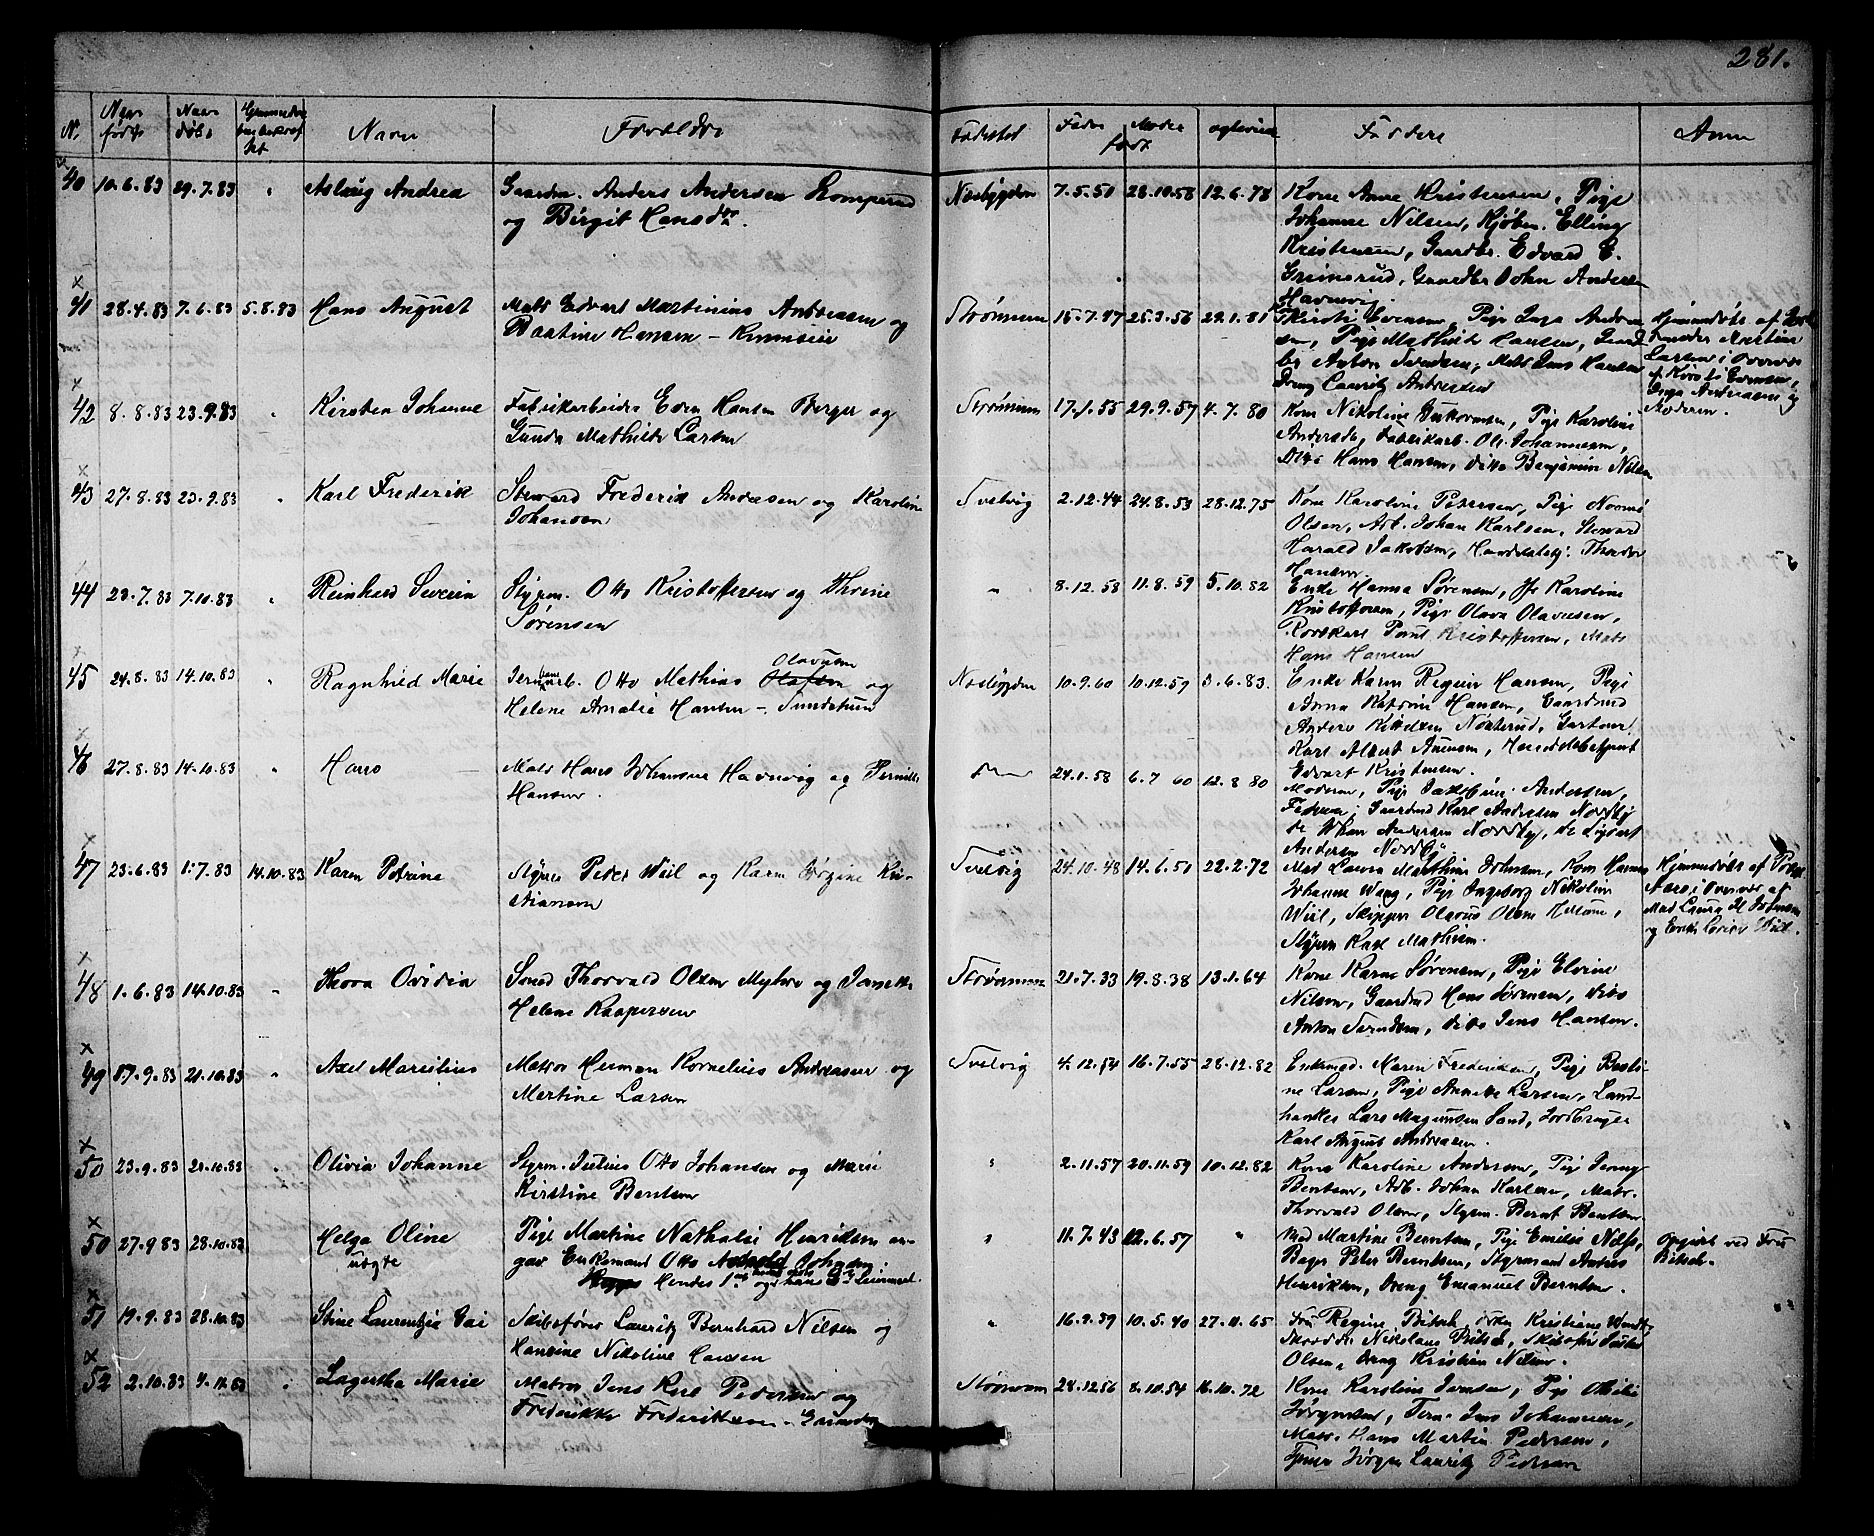 281.
N. Naar født Naar døbt Navn Forældre Fødested Fader Moder født Faddere Anm
40 10.6.83 29.7.83 " Aslaug Andrea Gaardm. Anders Andersen Lomperud Næsbygden 7.5.50 28.10.58 12.6.78 Kone Anne Kristensen, Pige
og Birgit Hansdtr. Johanne Nilsen, Kjøbm. Elling
Kristensen, Gaardbr. Edvard E.
Grimsrud, Gaardbr John Anders
Havnvig.
41 28.4.83 7.6.83 5.8.83 Hans August Mats Edvart Martinius Andreasen og Strømmen 15.7.47 25.3.56 29.1.81 Kirsti Evensen, Pige Inga Andrea Hjemmedøbt af
Baatine Hansen - sen, Pige Mathilde Hansen, Kristine
br Anton Svendsen, Mats Jens Hansen Larsen i Overvær
Dreng Lauritz Andresen af Kirsti Evensen,
Inga Andreasen og
Moderen.
42 8.8.83 23.9.83 " Kirsten Johanne Fabrikarbeider Even Hansen Berger og Strømmen 17.1.55 29.9.57 4.7.80 Kone Nikoline Pige Karoline
Gunda Mathilde Larsen Andersdtr, Fabrikarb. Ole Johannesen,
Ditto Hans Hansen, ditto Benjamin Nilsen
43 27.8.83 23.9.83 " Karl Frederik Steward Frederik Andresen og Karoline Svelvig 2.12.44 24.8.53 28.12.75 Kone Karoline Petersen, Pige Naomi
Johansen Olsen, Arb. Johan Karlsen, Steward
Harald Jakobsen, Handelsbetj. Theodor
Hansen
44 23.7.83 7.10.83 " Reinhard Severin Styrm. Otto Kristoffersen og Thrine " 8.12.58 11.8.59 5.10.82 Enke Hanna Sørensen, Jfr Karoline
Sørensen Kristoffersen, Pige Olava Olavesen,
Kristoffersen, Mats
Hans Hansen
45 24.8.83 14.10.83 " Ragnhild Marie Jernbanearb. Otto Mathias Olavesen og Næsbygden 10.9.60 10.12.59 3.6.83. Enke Karen Regine Hansen, Pige
Helene Amalie Hansen - Sundstuen Anna Katrine Hansen, Gaardmd
Anders Kittelsen Nøsterud, Gartner
Karl Albert Arnesen, Handelsbetjent
Edvart Kristensen.
46 27.8.83 14.10.83 " Hans Mats Hans Johansen Havnvig og Pernille 24.1.58 6.7 60 12.8 80 Moderen, Pige Andersen,
Hansen. Faderen, Gaardmd Karl Andersen Nordby
de Johan Andersen Nordby,
Andersen Nordby
47 23.6.83 1.7.83 14.10.83 Karen Petrine Styrm Peter Wiel og Karen Jørgine Kri- Svelvig 24.10.48 14.6.50 22.2.72 Mad Laura Mathine Johnsen, Kone Hanna Hjemmedøbt af
stiansen Johanne Wang, Pige Ingeborg Nikoline i Overvær af
Wiel, Skipper Olavus Olsen Mad Laura M. Johnsen
Styrm Karl Mathisen. og Enke Wiel.
48 1.6.83 14.10.83 " Thora Ovidia Thorvald Olsen Myhre og Strømmen 21.7.33 19.8.38 13.1.64 Kone Karen Sørensen, Pige Elvine
Helene Kaspersen Nilsen, Gaardmd Hans Sørensen, ditto
Anton Svendsen, ditto Jens Hansen.
49 17.9.83 21.10.83 " Axel Marselius Matros Herman Kornelius Andreasen og Svelvig 4.12.54 16.7.55 28.12.82 Maren Frederiksen, Pige
Martine Larsen ne Larsen, Pige Annette Larsen, Land-
handler Lars Magnussen Sand, Jordbruger
Karl August Andreasen.
50 23.9.83 21.10.83 " Olivia Johanne Styrm. Julius Otto Johansen og Marie " 2.11.57 20.11.59 10.12.82 Kone Karoline Andersen, Pige Jenny
Kirstine Berntsen Berntsen, Arb. Johan Karlsen, Matr.
Thorvald Olsen, Styrm. Bernt Berntsen
50 27.9 83 28.10.83 Helga Oline Pige Martine Nathalie Henriksen an- " 11.7.43 12.6.57 " Mad Martine Berntsen, Pige Emilie Nilsen,
uægte gav Enkemand Otto Johnsen. Bager Peter Berntsen, Styrmand Andreas opgivet ved Fru
Hendes 1ste og hans Leiermaal. Henriksen, Dreng Emanuel Berntsen. Bitsch.
51 19.9.83 28.10.83 Stine Laurentze Skibsfører Lauritz Bernhard Nilsen og " 16.9.39 10.5.40 27.11.65 Fru Regine Bitsch, Frk Kristiane
Hansine Nikoline Hansen Nikolane Bitsch,
Olsen, Dreng Kristian Nilsen.
52 2.10.83 4.11.83 " Lagertha Marie Matros Jens Karl Pedersen og Strømmen 28.12.56 8.10.54 16.10.72 Kone Karoline Jensen, Pige
Frederikke Frederiksen - Jørgensen, Jens Johannesen,
Matr. Hans Martin Pedersen,
Jørgen Lauritz Pedersen